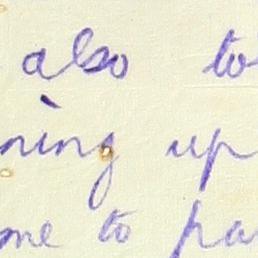 also to
ning up
me to pa